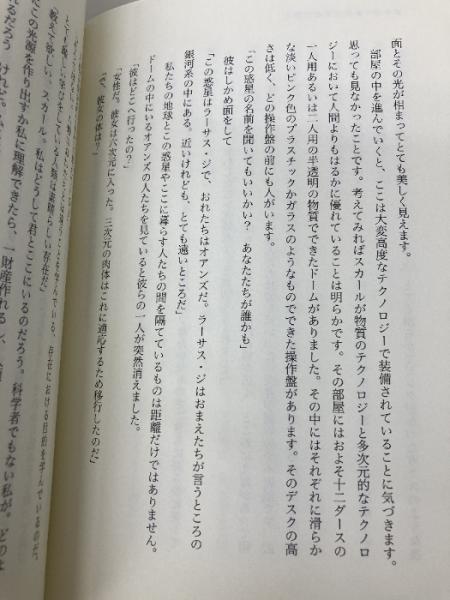 面とその光が相まってとても美しく見えます。
部屋の中を進んでいくと、ここは大変高度なテクノロジーで装備されていることに気づきます。
思っても見なかったことです。考えてみればスカールが物質のテクノロジーと多次元的なテクノロ
ジーにおいて人間よりもはるかに優れていることは明らかです。その部屋にはおよそ十二ダースの
一人用あるいは二人用の半透明の物質でできたドームがありました。その中にはそれぞれに滑らか
な淡いピンク色のプラスチックかガラスのようなものでできた操作盤があります。そのデスクの高
さは低く、どの操作盤の前にも人がいます。
「この惑星の名前を聞いてもいいかい? あなたたちが誰かも」
彼はしかめ面をして
「この惑星はラーサス・ジで、おれたちはオアンズだ。ラーサス・ジはおまえたちが言うところの
銀河系の中にある。近いけれども、とても遠いところだ」
私たちの地球とこの惑星やここに暮らす人たちの間を隔てているものは距離だけではありません。
ドームの中にいるオアンズの人たちを見ていると彼らの一人が突然消えました。
「彼はどこへ行ったの?」
「女性だ。彼女は六次元に入った。三次元の肉体はこれに適応するため移行したのだ」
彼女の体は?」
存在における目的を学んでいるのだ。
人類は素晴らしい存在だ」
スカール、私はどうして君とここにいるのだろう。科学者でもない私が。
この光源を作り出すか私に理解できたら、一財産作れる